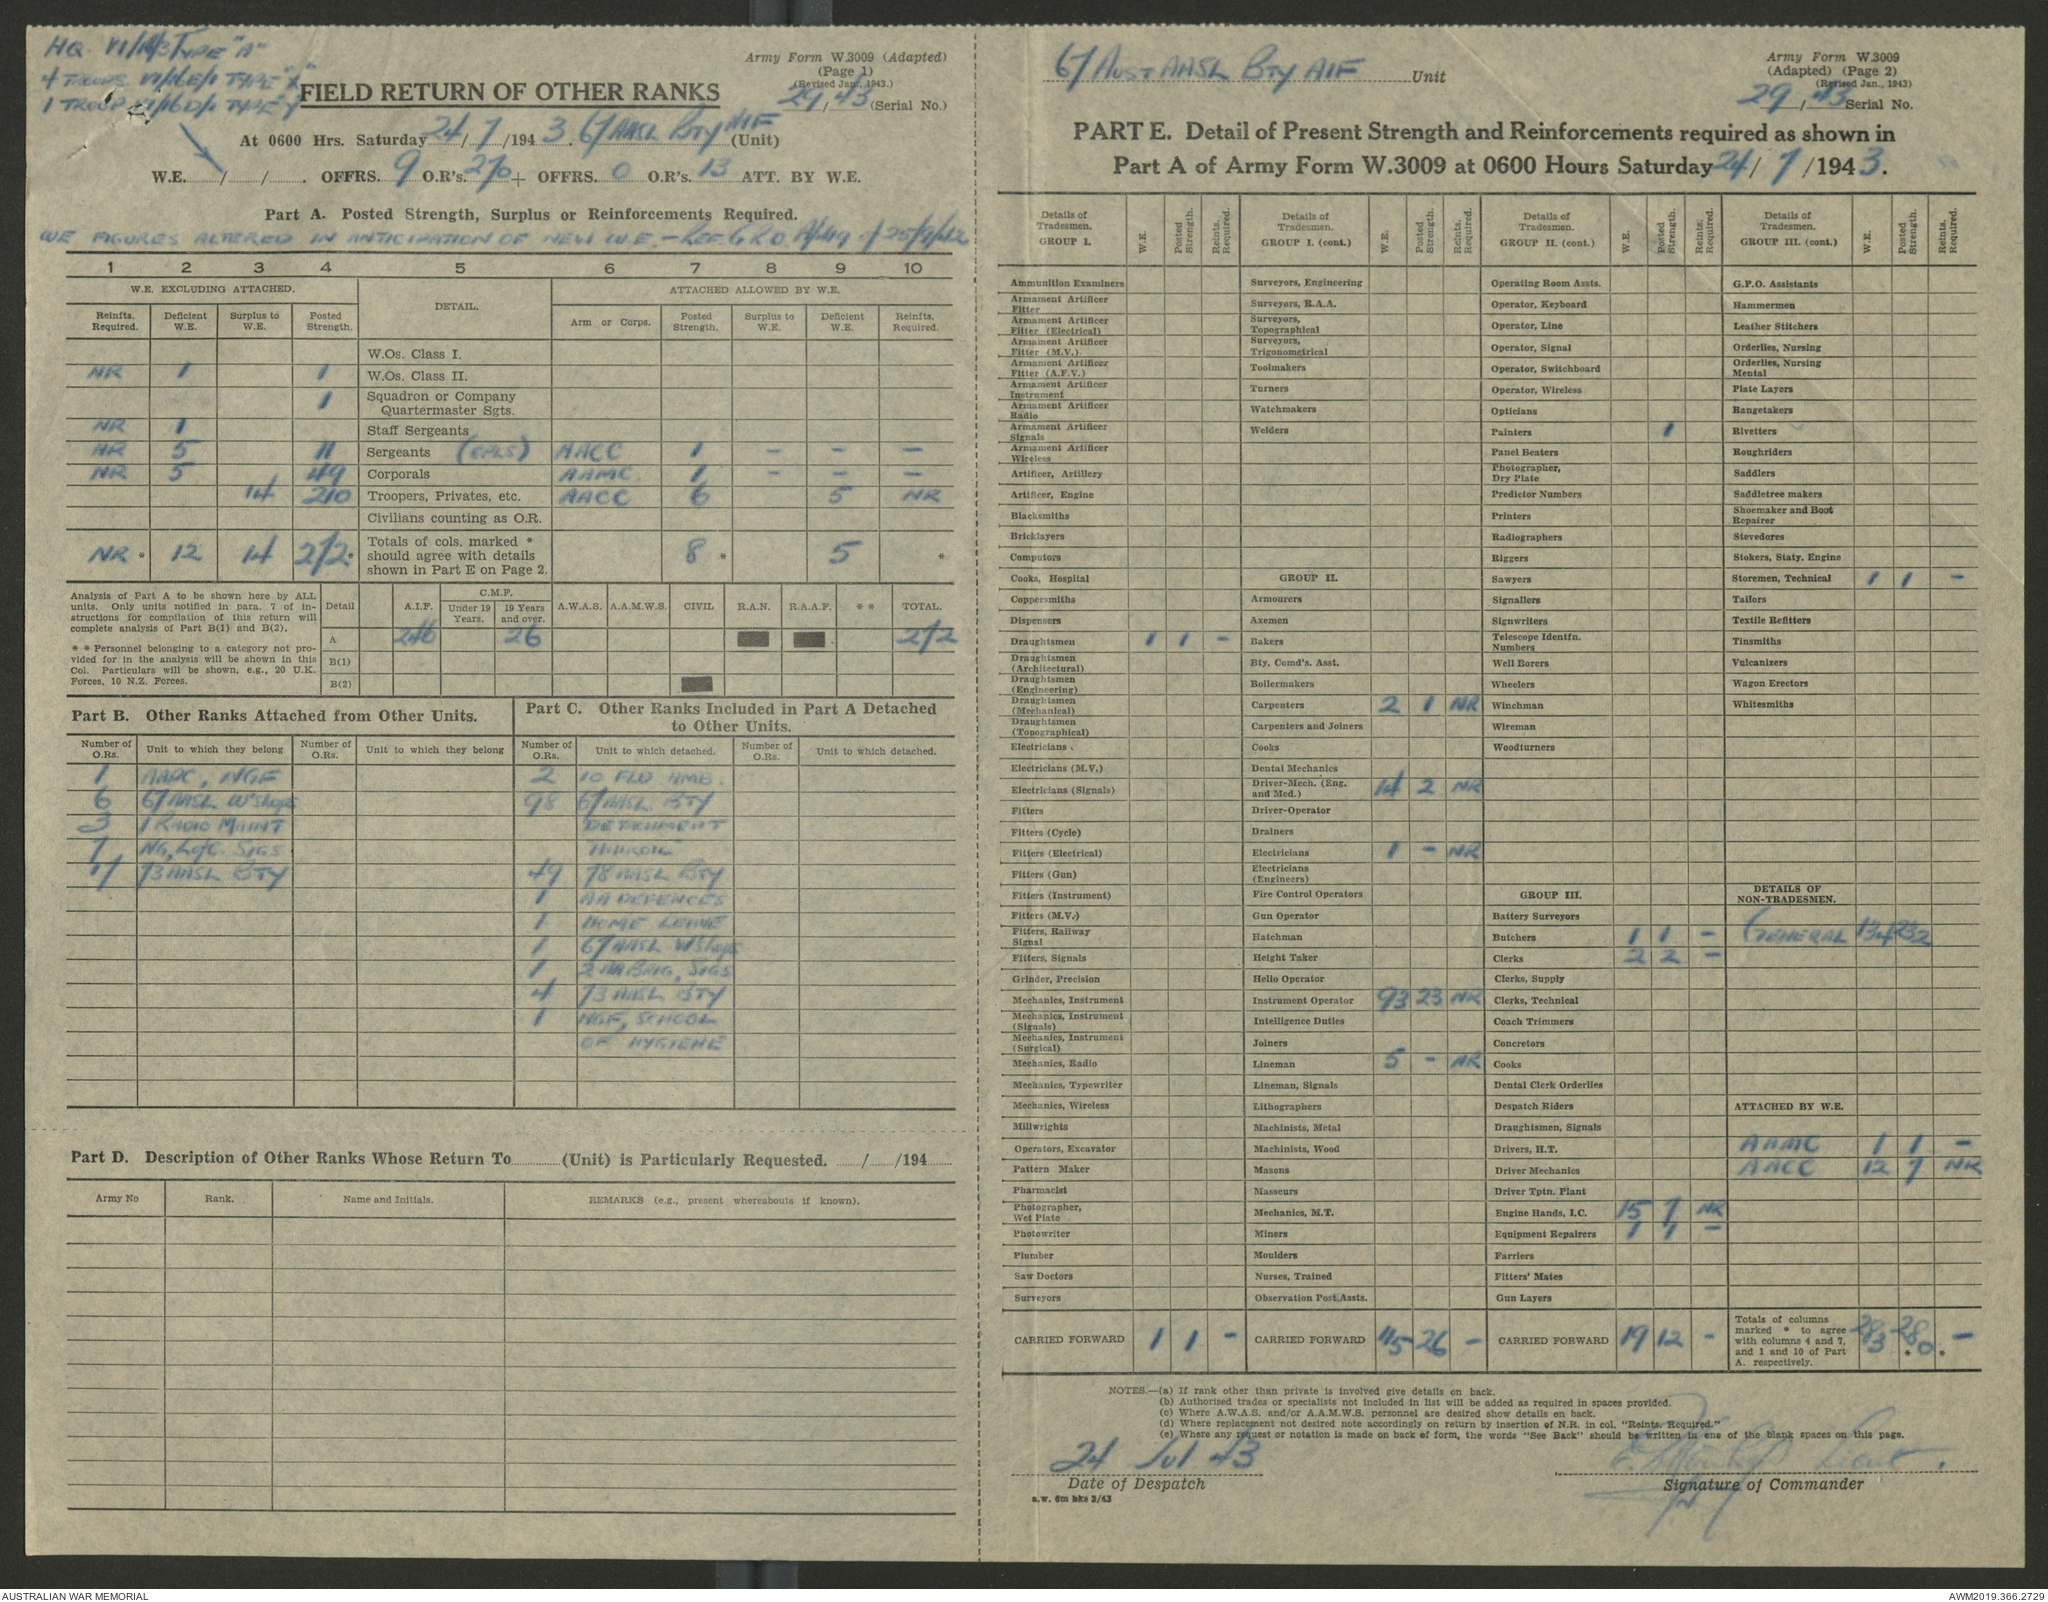 HQ. VI/16/3 TYPE "A"
4 TROOPS. VI/16E/1 TYPE "X"
1 TROOP VI/16D/1 TYPE "Y"
Army Form W.3009 (Adapted)
(Page 1)
(Revised Jan., 1943.)
FIELD RETURN OF OTHER RANKS
29/43 (Serial No.)
At 0600 Hrs. Saturday 24/7/1943. 67 AASL BTY AIF (Unit)
W.E. / / . OFFRS. 9 O.R's. 270 + OFFRS. 0 O.R's. 13 ATT. BY W.E.
Part A. Posted Strength, Surplus or Reinforcements Required.
WE FIGURES ALTERED IN ANTICIPATION OF NEW W.E. - REF. GRO A/449 of 25/9/42
1 2 3 4 5 6 7 8 9 10
W.E. EXCLUDING ATTACHED. DETAIL. ATTACHED ALLOWED BY W.E.
Reinfts. Required. Deficient W.E. Surplus to W.E. Posted Strength. Arm or Corps. Posted Strength. Surplus to W.E. Deficient W.E. Reinfts. Required.
W.Os. Class I.
NR 1 1 W.Os. Class II.
1 Squadron or Company Quartermaster Sgts.
NR 1 Staff Sergeants
NR 5 11 Sergeants (CPLS) AACC 1 - - -
NR 5 49 Corporals AAMC. 1 - - -
14 210 Troopers, Privates, etc. AACC 6 5 NR
Civilians counting as O.R.
NR * 12 14 272 * Totals of cols. marked * should agree with details shown in Part E on Page 2. 8 * 5 *
Analysis of Part A to be shown here by ALL units. Only units notified in para. 7 of instructions for compilation of this return will complete analysis of Part B(1) and B(2).
* * Personnel belonging to a category not provided for in the analysis will be shown in this Col. Particulars will be shown, e.g., 20 U.K. Forces, 10 N.Z. Forces.
Detail A.I.F. C.M.F. Under 19 Years. 19 Years and over. A.W.A.S. A.A.M.W.S. CIVIL R.A.N. R.A.A.F. * * TOTAL.
A 246 26 272
B(1)
B(2)
Part B. Other Ranks Attached from Other Units.
Part C. Other Ranks Included in Part A Detached to Other Units.
Number of O.Rs. Unit to which they belong Number of O.Rs. Unit to which they belong Number of O.Rs. Unit to which detached. Number of O.Rs. Unit to which detached.
1 AAPC, NGF 2 10 FLD AMB.
6 67 AASL W'Shops 98 67 AASL. BTY
3 1 RADIO MAINT DETACHMENT
NG, L of C. SIGS
73 AASL BTY 49 78 AASL BTY
1 AA DEFENCES
1 HOME LEAVE
1 67 AASL W'Shops
1 2 AA BRIG, SIGS
4 73 AASL BTY
1 NGF, SCHOOL
OF HYGIENE
Part D. Description of Other Ranks Whose Return To (Unit) is Particularly Requested. / /194
Army No Rank. Name and Initials. REMARKS (e.g., present whereabouts if known).
67 AUST AASL BTY AIF Unit
Army Form W.3009
(Adapted) (Page 2)
(Revised Jan., 1943)
29/43 Serial No.
PART E. Detail of Present Strength and Reinforcements required as shown in
Part A of Army Form W.3009 at 0600 Hours Saturday 24/7/1943.
Details of Tradesmen. GROUP I. W.E. Posted Strength. Reints. Required.
Ammunition Examiners
Armament Artificer Fitter
Armament Artificer Fitter (Electrical)
Armament Artificer Fitter (M.V.)
Armament Artificer Fitter (A.F.V.)
Armament Artificer Instrument
Armament Artificer Radio
Armament Artificer Signals
Armament Artificer Wireless
Artificer, Artillery
Artificer, Engine
Blacksmiths
Bricklayers
Computors
Cooks, Hospital
Coppersmiths
Dispensers
Draughtsmen 1 1 -
Draughtsmen (Architectural)
Draughtsmen (Engineering)
Draughtsmen (Mechanical)
Draughtsmen (Topographical)
Electricians
Electricians (M.V.)
Electricians (Signals)
Fitters
Fitters (Cycle)
Fitters (Electrical)
Fitters (Gun)
Fitters (Instrument)
Fitters (M.V.)
Fitters, Railway Signal
Fitters, Signals
Grinder, Precision
Mechanics, Instrument
Mechanics, Instrument (Signals)
Mechanics, Instrument (Surgical)
Mechanics, Radio
Mechanics, Typewriter
Mechanics, Wireless
Millwrights
Operators, Excavator
Pattern Maker
Pharmacist
Photographer, Wet Plate
Photowriter
Plumber
Saw Doctors
Surveyors
CARRIED FORWARD 1 1 -
Details of Tradesmen. GROUP I. (cont.) W.E. Posted Strength. Reints. Required.
Surveyors, Engineering
Surveyors, R.A.A.
Surveyors, Topographical
Surveyors, Trigonometrical
Toolmakers
Turners
Watchmakers
Welders
GROUP II.
Armourers
Axemen
Bakers
Bty. Comd's. Asst.
Boilermakers
Carpenters 2 1 NR
Carpenters and Joiners
Cooks
Dental Mechanics
Driver-Mech. (Eng. and Med.) 14 2 NR
Driver-Operator
Drainers
Electricians 1 - NR
Electricians (Engineers)
Fire Control Operators
Gun Operator
Hatchman
Height Taker
Helio Operator
Instrument Operator 93 23 NR
Intelligence Duties
Joiners
Lineman 5 - NR
Lineman, Signals
Lithographers
Machinists, Metal
Machinists, Wood
Masons
Masseurs
Mechanics, M.T.
Miners
Moulders
Nurses, Trained
Observation Post Assts.
CARRIED FORWARD 115 26 -
Details of Tradesmen. GROUP II. (cont.) W.E. Posted Strength. Reints. Required.
Operating Room Assts.
Operator, Keyboard
Operator, Line
Operator, Signal
Operator, Switchboard
Operator, Wireless
Opticians
Painters 1
Panel Beaters
Photographer, Dry Plate
Predictor Numbers
Printers
Radiographers
Riggers
Sawyers
Signallers
Signwriters
Telescope Identfn. Numbers
Well Borers
Wheelers
Winchman
Wireman
Woodturners
GROUP III.
Battery Surveyors
Butchers 1 1 -
Clerks 2 2 -
Clerks, Supply
Clerks, Technical
Coach Trimmers
Concretors
Cooks
Dental Clerk Orderlies
Despatch Riders
Draughtsmen, Signals
Drivers, H.T.
Driver Mechanics
Driver Tptn. Plant
Engine Hands, I.C. 15 7 NR
Equipment Repairers 1 1 -
Farriers
Fitters' Mates
Gun Layers
CARRIED FORWARD 19 12 -
Details of Tradesmen. GROUP III. (cont.) W.E. Posted Strength. Reints. Required.
G.P.O. Assistants
Hammermen
Leather Stitchers
Orderlies, Nursing
Orderlies, Nursing Mental
Plate Layers
Rangetakers
Rivetters
Roughriders
Saddlers
Saddletree makers
Shoemaker and Boot Repairer
Stevedores
Stokers, Staty. Engine
Storemen, Technical 1 1 -
Tailors
Textile Refitters
Tinsmiths
Vulcanizers
Wagon Erectors
Whitesmiths
DETAILS OF NON-TRADESMEN.
GENERAL 134 232
ATTACHED BY W.E.
AAMC 1 1 -
AACC 12 7 NR
Totals of columns marked * to agree with columns 4 and 7, and 1 and 10 of Part A. respectively. 283 280 * * -
NOTES.—(a) If rank other than private is involved give details on back.
(b) Authorised trades or specialists not included in list will be added as required in spaces provided.
(c) Where A.W.A.S. and/or A.A.M.W.S. personnel are desired show details on back.
(d) Where replacement not desired note accordingly on return by insertion of N.R. in col. "Reints. Required."
(e) Where any request or notation is made on back of form, the words "See Back" should be written in one of the blank spaces on this page.
24 Jul 43
Lieut.
Date of Despatch
Signature of Commander
a.w. 6m bks 3/43
AUSTRALIAN WAR MEMORIAL
AWM2019.366.2729